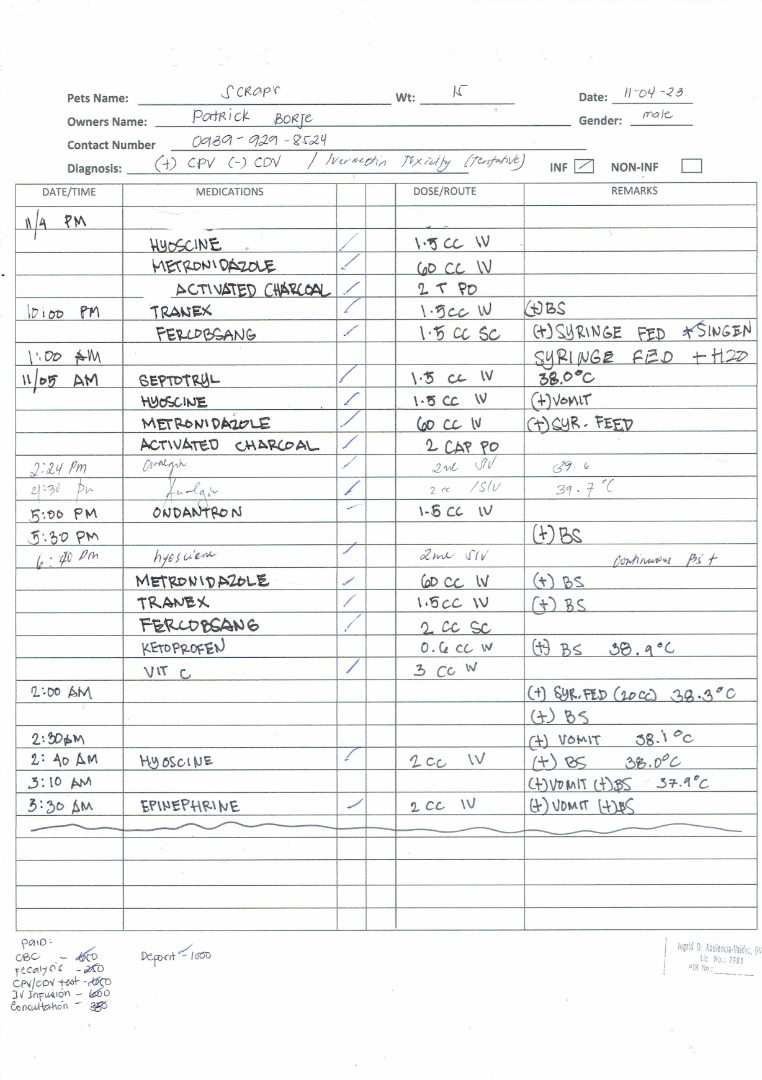 Pets Name: SCRAPY Wt: 15 Date: 11-04-23
Owners Name: Patrick BORJE Gender: male
Contact Number 0939-929-8524
Diagnosis: (+) CPV (-) CDV / Ivermectin Toxicity (Tentative) INF NON-INF
DATE/TIME MEDICATIONS DOSE/ROUTE REMARKS
11/4 PM
HYOSCINE 1.5 CC IV
METRONIDAZOLE 60 CC IV
ACTIVATED CHARCOAL 2 T PO
10:00 PM TRANEX 1.5cc IV (+)BS
FERCOBSANG 1.5 CC SC (+)SYRINGE FED *SINGEN
1:00 AM SYRINGE FED + H2O
11/05 AM SEPTOTRYL 1.5 cc IV 38.0°C
HYOSCINE 1.5 CC IV (+)VOMIT
METRONIDAZOLE 60 CC IV (+)SYR. FEED
ACTIVATED CHARCOAL 2 CAP PO
2:24 Pm 2ml SIV 39.6
Analgin 2cc /SIV 39.7°C
5:00 PM ONDANTRON 1.5 CC IV
5:30 PM (+) BS
hyoscine 2ml SIV Continuous BS +
METRONIDAZOLE 60 CC IV (+) BS
TRANEX 1.5CC IV (+) BS
FERCOBSANG 2 CC SC
KETOPROFEN 0.6 CC IV (+) BS 38.9°C
VIT C 3 CC IV
2:00 AM (+) SYR.FED (20cc) 38.3°C
(+) BS
2:30AM (+) VOMIT 38.1°C
2:40 AM HYOSCINE 2 CC IV (+) BS 38.0°C
3:10 AM (+)VOMIT (+)BS 37.9°C
3:30 AM EPINEPHRINE 2 CC IV (+) VOMIT (+)BS
PAID:
CBC Deposit - 1000
Fecalysis - 250
CPV/CDV test
IV Infusion - 600
Consultation - 350
Ingrid D. Abulencia-Valdez, DV
Lic. No.: 7981
PTR No.: